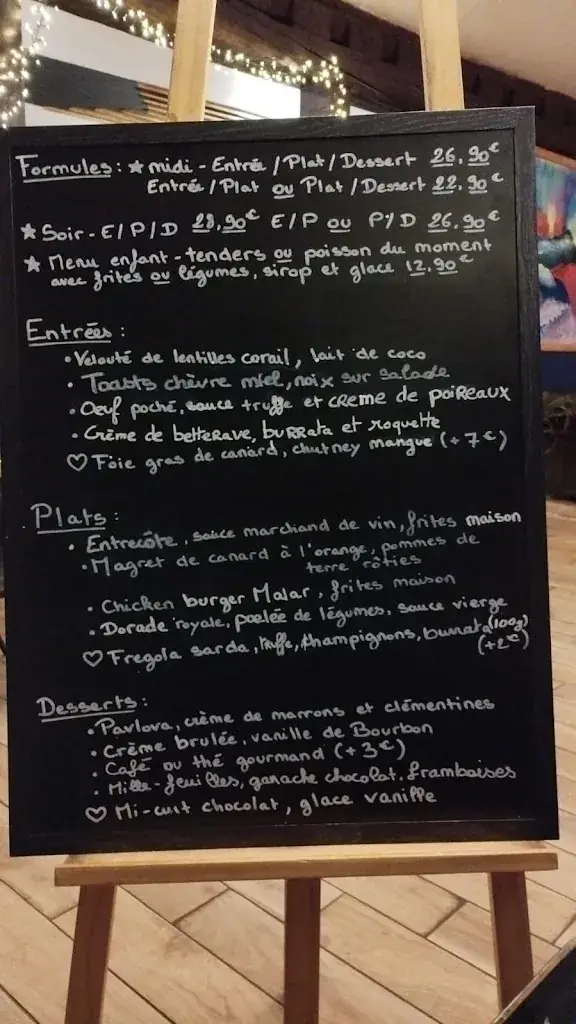 Formules : ★ midi - Entrée / Plat / Dessert 26.90€
Entrée / Plat ou Plat / Dessert 22.90€
★ Soir - E/P/D 28,90€ E/P ou P/D 26.90€
★ Menu enfant - tenders ou poisson du moment
avec frites ou légumes, sirop et glace 12.90€
Entrées :
• Velouté de lentilles corail, lait de coco
• Toasts chèvre miel, noix sur salade
• Oeuf poché, sauce truffe et crème de poireaux
• Crème de betterave, burrata et roquette
♡ Foie gras de canard, chutney mangue (+ 7€)
Plats :
• Entrecôte, sauce marchand de vin, frites maison
• Magret de canard à l'orange, pommes de
terre rôties
• Chicken burger Malar, frites maison
• Dorade royale, poelée de légumes, sauce vierge
♡ Fregola sarda, truffe, champignons, burrata (100g)
(+2€)
Desserts :
• Pavlova, crème de marrons et clémentines
• Crème brulée, vanille de Bourbon
• Café ou thé gourmand (+ 3€)
• Mille-feuilles, ganache chocolat, framboises
♡ Mi-cuit chocolat, glace vanille